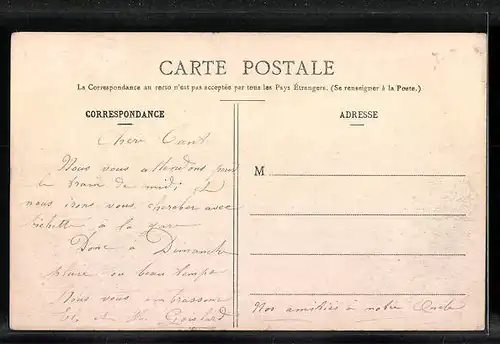 CARTE POSTALE
La Correspondance au recto n'est pas acceptée par tous les Pays Étrangers. (Se renseigner à la Poste.)
CORRESPONDANCE
Nous vous attendons pour
le train de midi et
nous irons vous chercher avec
à la gare
Donc à Dimanche
pluie ou beau temps
Nous vous embrassons
Et
ADRESSE
M
Nos amitiés à notre Oncle